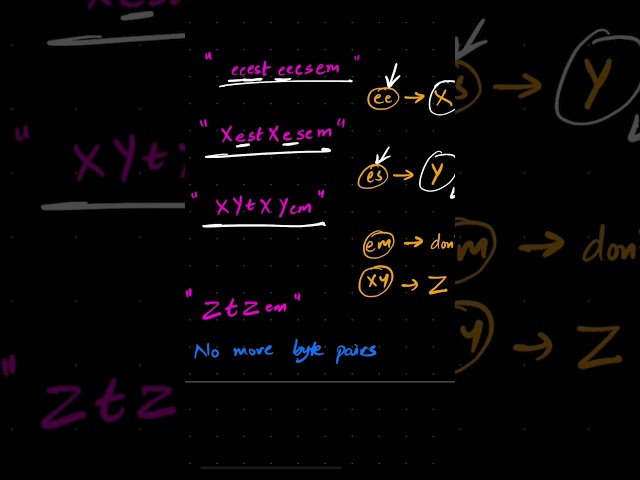 " eeest eecsem "
ee → X
" XestXesem "
es → Y
" XYtXYem "
em → don
XY → Z
" ZtZem "
No more byte pairs